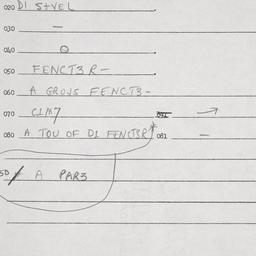 020 DI S+VEL
030 —
040
050 FENCT3R-
060 A GROUS FENCT3-
070 C1M7 →
080 A TOU OF D1 FENCT3R* 081 —
A PAR3